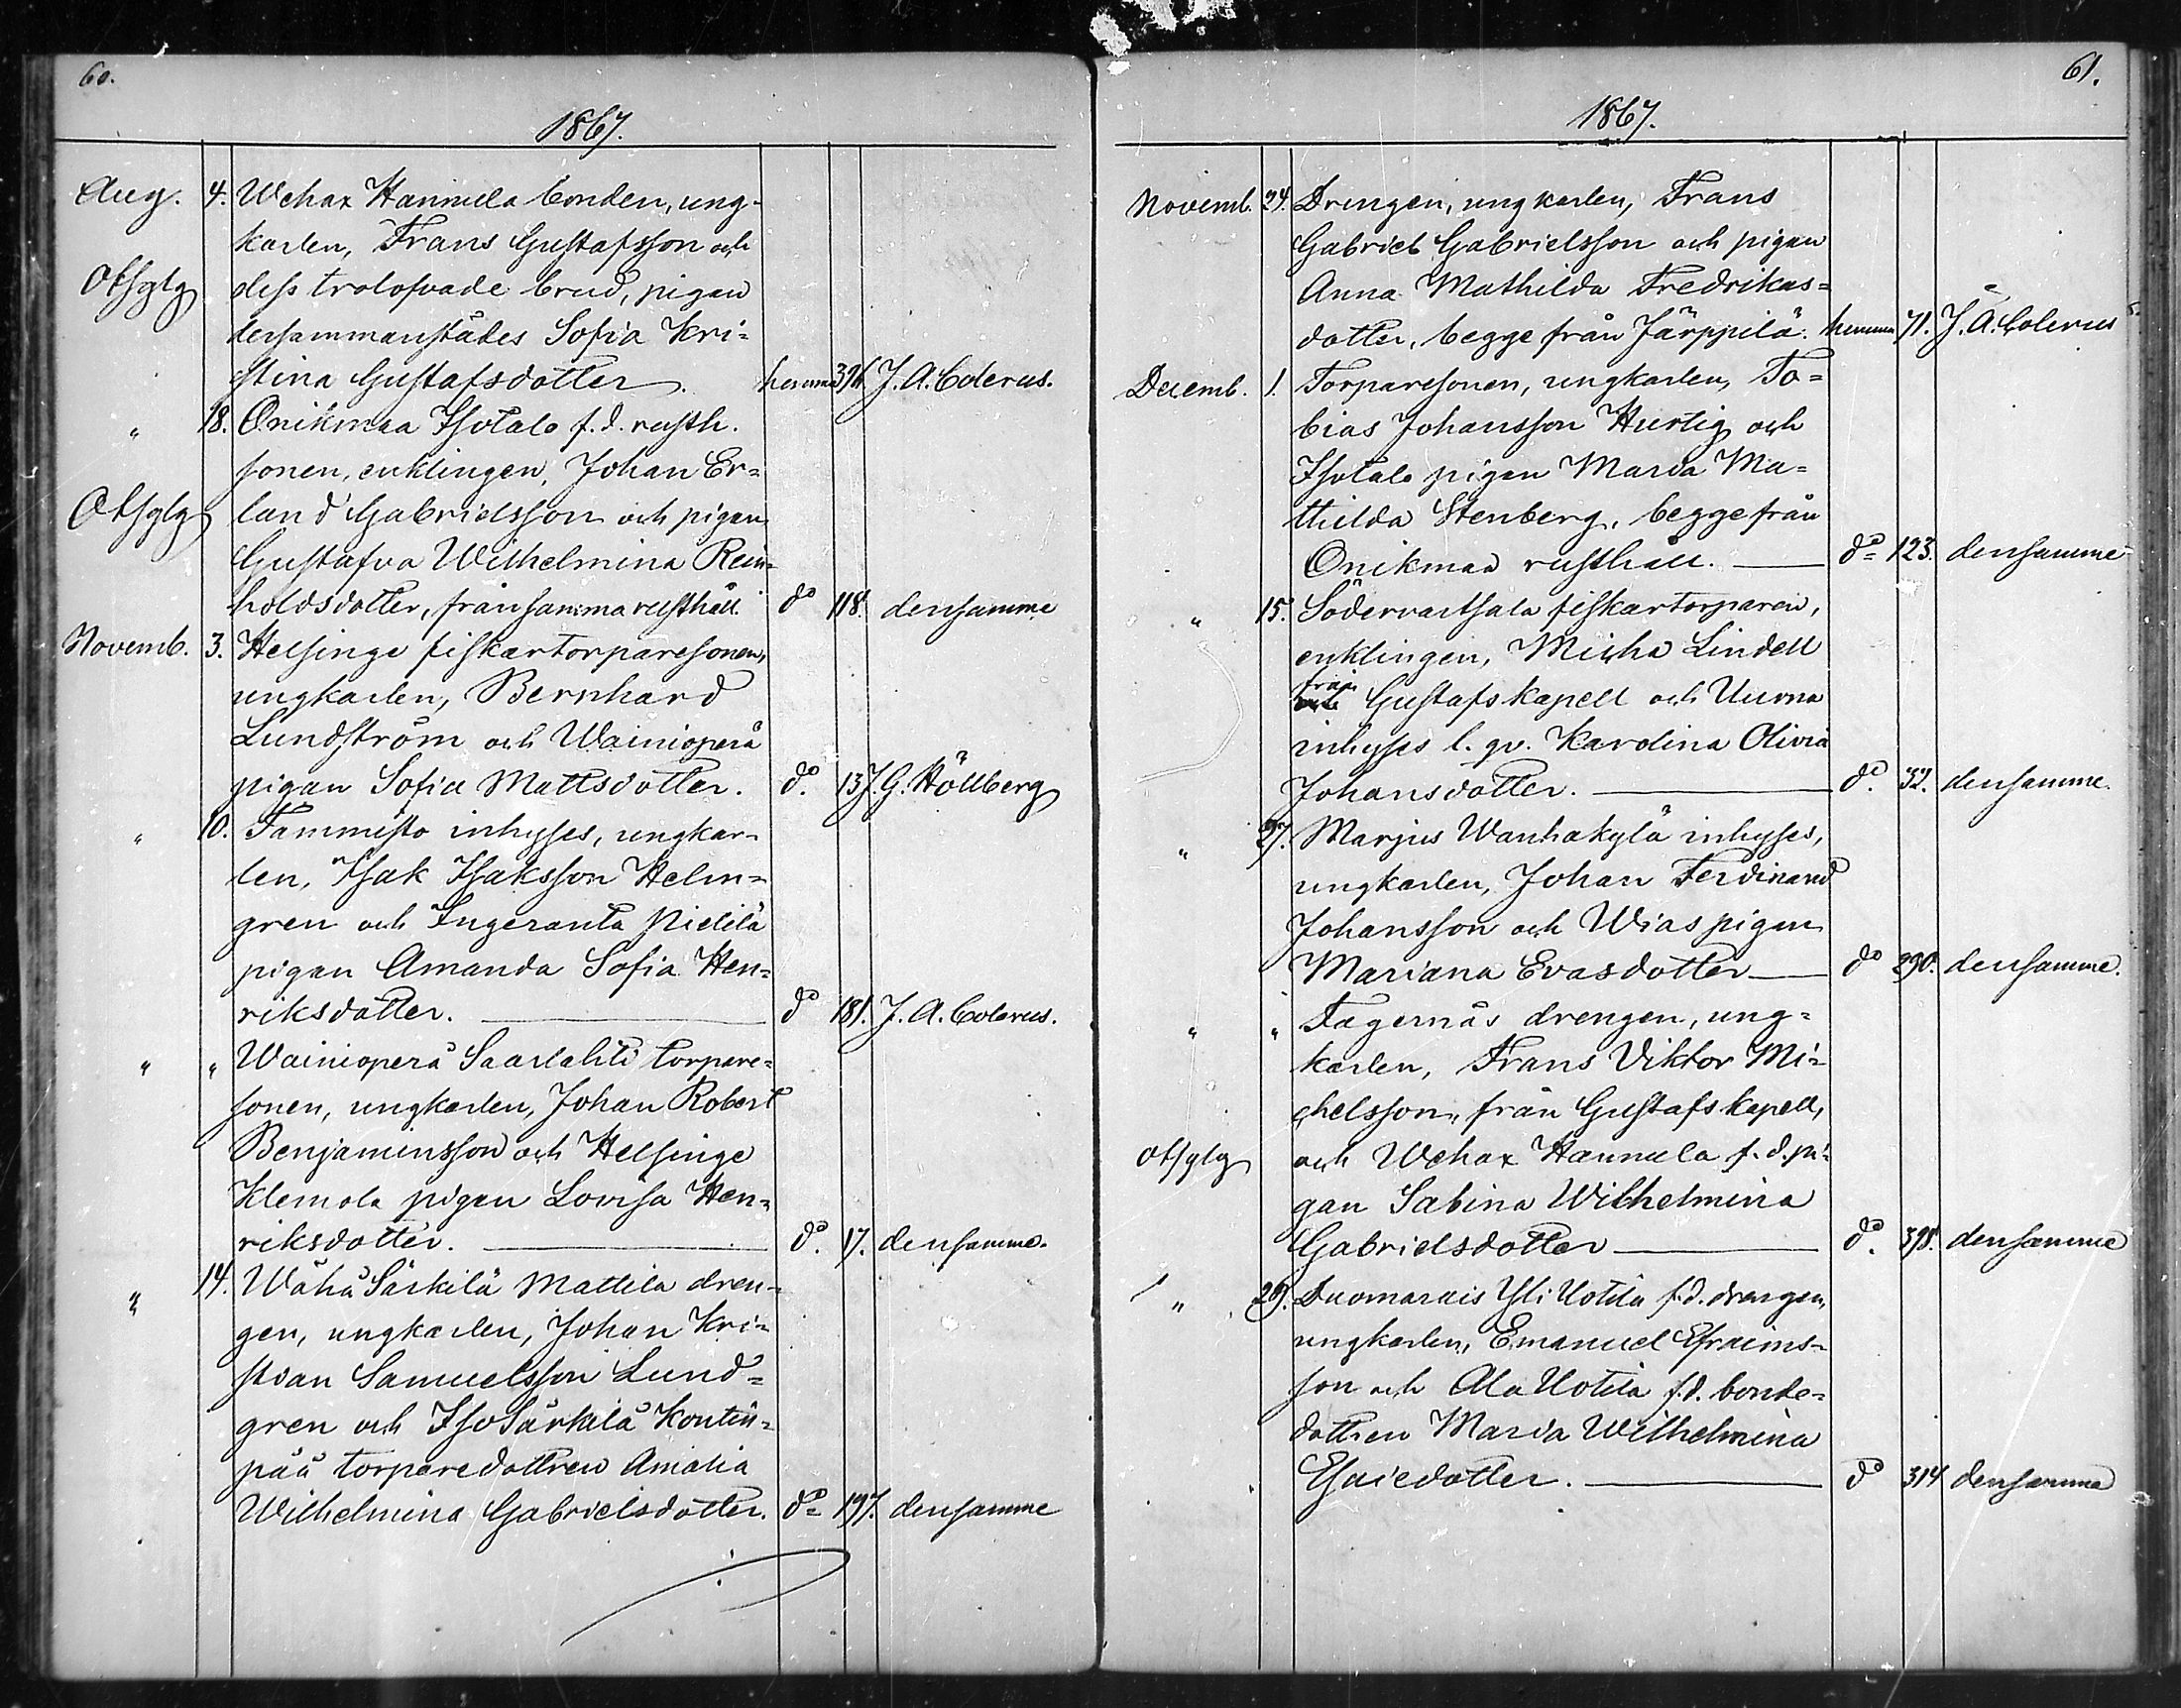 60.
1867.
Aug. 4. Wehax Hannula bonden, ung-
karlen, Frans Gustafsson och
Otsgtg dess trolofvade brud, pigan
dersammanstädes Sofia Kri-
stina Gustafsdotter. hemma 396 J. A. Colerus.
" 18. Onikmaa Isotalo f. d. rusth.
sonen, enklingen, Johan Er-
Otsgtg land Gabrielsson och pigan
Gustafva Wilhelmina Rein-
holdsdotter, från samma rusthåll. do 118. densamme
Novemb. 3. Helsinge fiskartorparesonen,
ungkarlen, Bernhard
Lundström och Wainioperä
pigan Sofia Mattsdotter. do. 137. G. Höllberg
" 10. Tammisto inhyses, ungkar-
len, Isak Isaksson Helm-
gren och Ingeranta Pietilä
pigan Amanda Sofia Hen-
riksdotter. do 181. J. A. Colerus.
" " Wainioperä Saarlahti torpare-
sonen, ungkarlen, Johan Robert
Benjaminsson och Helsinge
Klemola pigan Lovisa Hen-
riksdotter. do. 17. densamme.
" 14. Wähä Särkilä Mattila dren-
gen, ungkarlen, Johan Kri-
stian Samuelsson Lund-
gren och Iso Särkilä Kontin-
pää torparedottren Amalia
Wilhelmina Gabrielsdotter. do 197. densamme
61.
1867.
Novemb. 24. Drengen, ungkarlen, Frans
Gabriel Gabrielsson och pigan
Anna Mathilda Fredrikas-
dotter, begge från Järppilä. hemma 71. J. A. Colerus
Decemb. 1. Torparesonen, ungkarlen, To-
bias Johansson Hurtig och
Isotalo pigan Maria Ma-
thilda Stenberg, begge från
Onikmaa rusthåll. do 123. densamme
" 15. Södervartsala fiskartorparen,
enklingen, Micha Lindell
från Gustafs kapell och Uurna
inhyses l. qv. Karolina Olivia
Johansdotter. do. 32. densamme.
" 27. Marjus Wanhakylä inhyses,
ungkarlen, Johan Ferdinand
Johansson och Wias pigan
Mariana Evasdotter do 290. densamme.
" " Fagernäs drengen, ung-
karlen, Frans Viktor Mi-
chelsson, från Gustafs kapell,
Otsgtg och Wehax Hannula f. d. pi-
gan Sabina Wilhelmina
Gabrielsdotter do. 398. densamme
" 29. Duomarais Yli Uotila f. d. drengen,
ungkarlen, Emanuel Efraims-
son och Ala Uotila f. d. bonde-
dottren Maria Wilhelmina
Esaiedotter. do 314 densamme